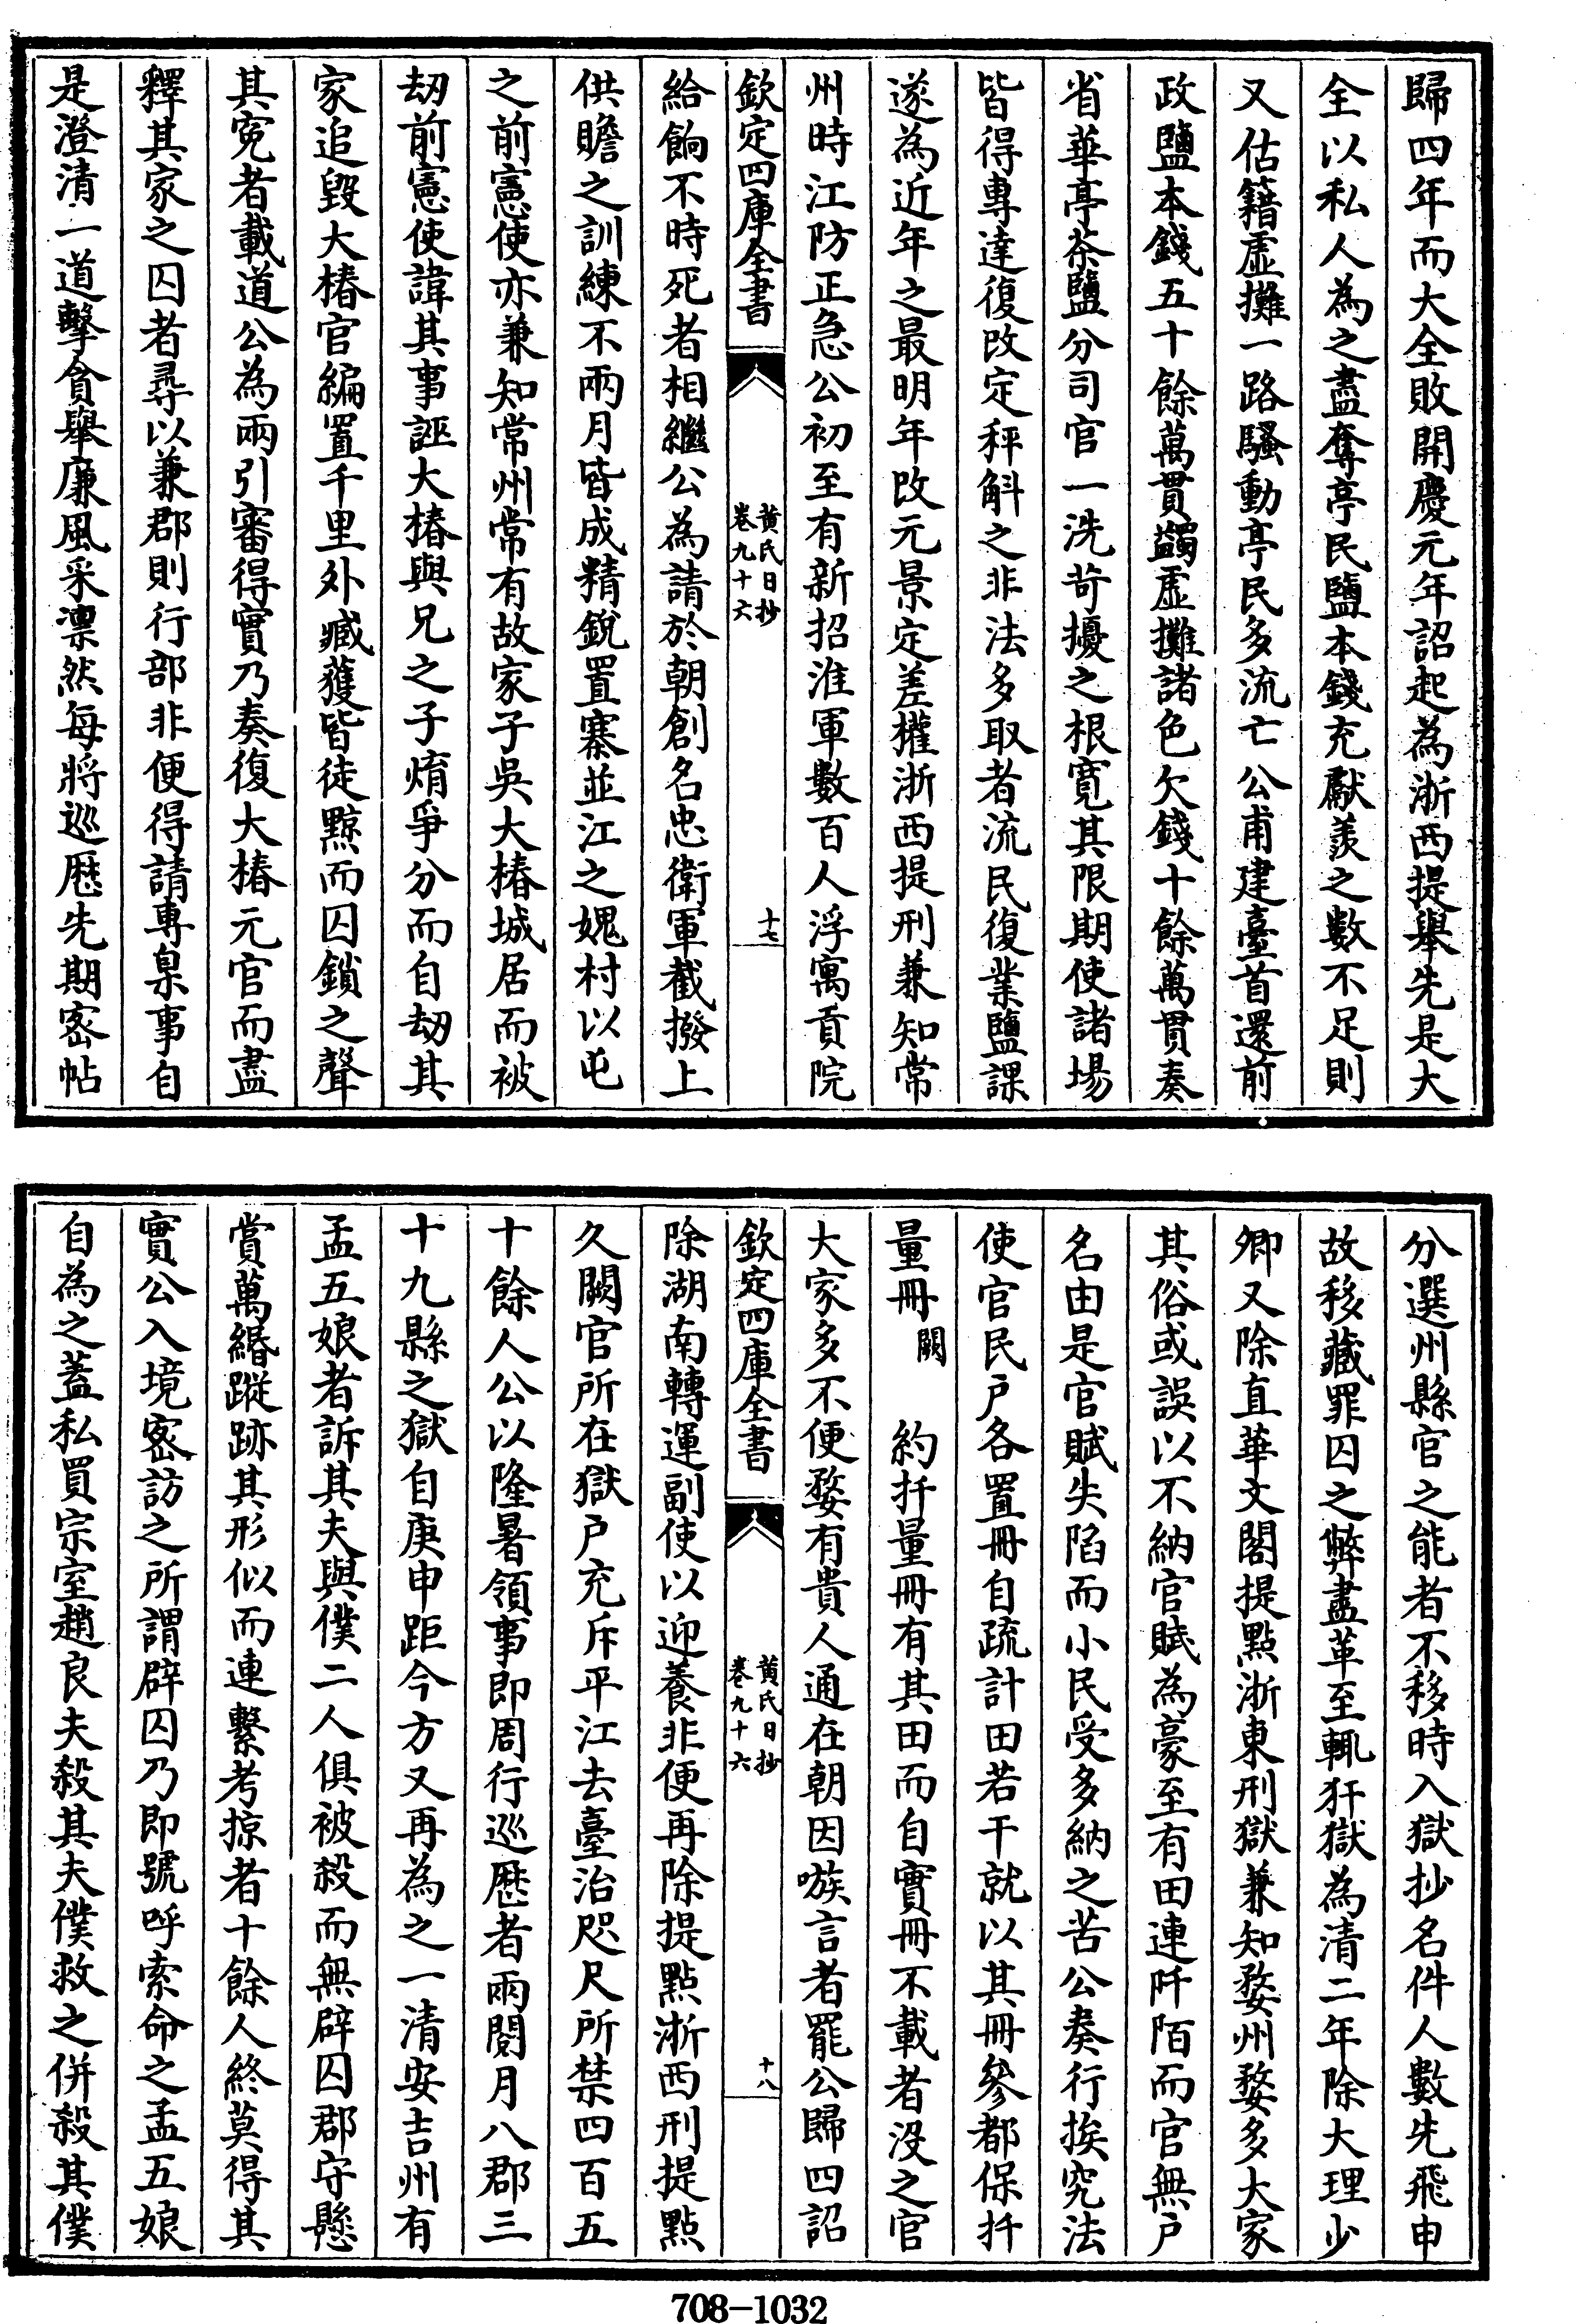 歸四年而大全敗開慶元年詔起為浙西提舉先是大
全以私人為之盡奪亭民鹽本錢充獻羨之數不足則
又估籍虛攤一路騷動亭民多流亡公甫建臺首還前
政鹽本錢五十餘萬貫蠲虛攤諸色欠錢十餘萬貫奏
省華亭茶鹽分司官一洗苛擾之根寬其限期使諸場
皆得專達復改定秤斛之非法多取者流民復業鹽課
遂為近年之最明年改元景定差權浙西提刑兼知常
州時江防正急公初至有新招淮軍數百人浮寓貢院
欽定四庫全書
黃氏日抄
卷九十六
十七
給餉不時死者相繼公為請於朝創名忠衛軍截撥上
供贍之訓練不兩月皆成精銳置寨並江之媿村以屯
之前憲使亦兼知常州常有故家子吳大椿城居而被
劫前憲使諱其事誣大椿與兄之子焴爭分而自劫其
家追毀大椿官編置千里外臧獲皆徒黥而囚鎖之聲
其冤者載道公為兩引審得實乃奏復大椿元官而盡
釋其家之囚者尋以兼郡則行部非便得請專臬事自
是澄清一道擊貪舉廉風采凛然每將巡歷先期密帖
分選州縣官之能者不移時入獄抄名件人數先飛申
故移藏罪囚之弊盡革至輒犴獄為清二年除大理少
卿又除直華文閣提點浙東刑獄兼知婺州婺多大家
其俗或誤以不納官賦為豪至有田連阡陌而官無户
名由是官賦失陷而小民受多納之苦公奏行挨究法
使官民户各置冊自疏計田若干就以其冊參都保扦
量冊闕約扦量冊有其田而自實冊不載者没之官
大家多不便婺有貴人通在朝因嗾言者罷公歸四詔
欽定四庫全書
黃氏日抄
卷九十六
十八
除湖南轉運副使以迎養非便再除提點浙西刑提點
久闕官所在獄户充斥平江去臺治咫尺所禁四百五
十餘人公以隆暑領事即周行巡歷者兩閱月八郡三
十九縣之獄自庚申距今方又再為之一清安吉州有
孟五娘者訴其夫與僕二人俱被殺而無辟囚郡守懸
賞萬緡蹤跡其形似而連繫考掠者十餘人終莫得其
實公入境密訪之所謂辟囚乃即號呼索命之孟五娘
自為之蓋私買宗室趙良夫殺其夫僕救之併殺其僕
708-1032